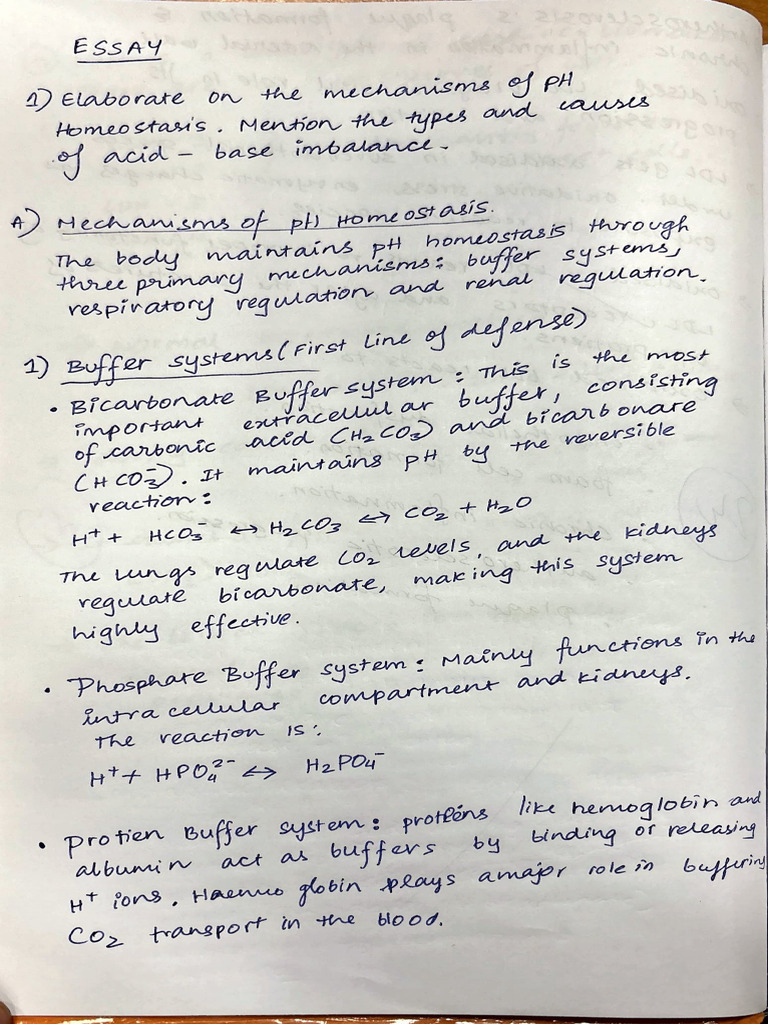 ESSAY
1) Elaborate on the mechanisms of pH
Homeostasis. Mention the types and causes
of acid - base imbalance.
A) Mechanisms of pH Homeostasis.
The body maintains pH homeostasis through
three primary mechanisms: buffer systems,
respiratory regulation and renal regulation.
1) Buffer systems (First line of defense)
• Bicarbonate Buffer system : This is the most
important extracellular buffer, consisting
of carbonic acid (H2CO3) and bicarbonate
(HCO3-). It maintains pH by the reversible
reaction :
H+ + HCO3- ↔ H2CO3 ↔ CO2 + H2O
The lungs regulate CO2 levels, and the kidneys
regulate bicarbonate, making this system
highly effective.
• Phosphate Buffer system : Mainly functions in the
intracellular compartment and kidneys.
The reaction is :
H+ + HPO4 2- ↔ H2PO4-
• Protien Buffer system : proteins like hemoglobin and
albumin act as buffers by binding or releasing
H+ ions. Haemo globin plays a major role in buffering
CO2 transport in the blood.